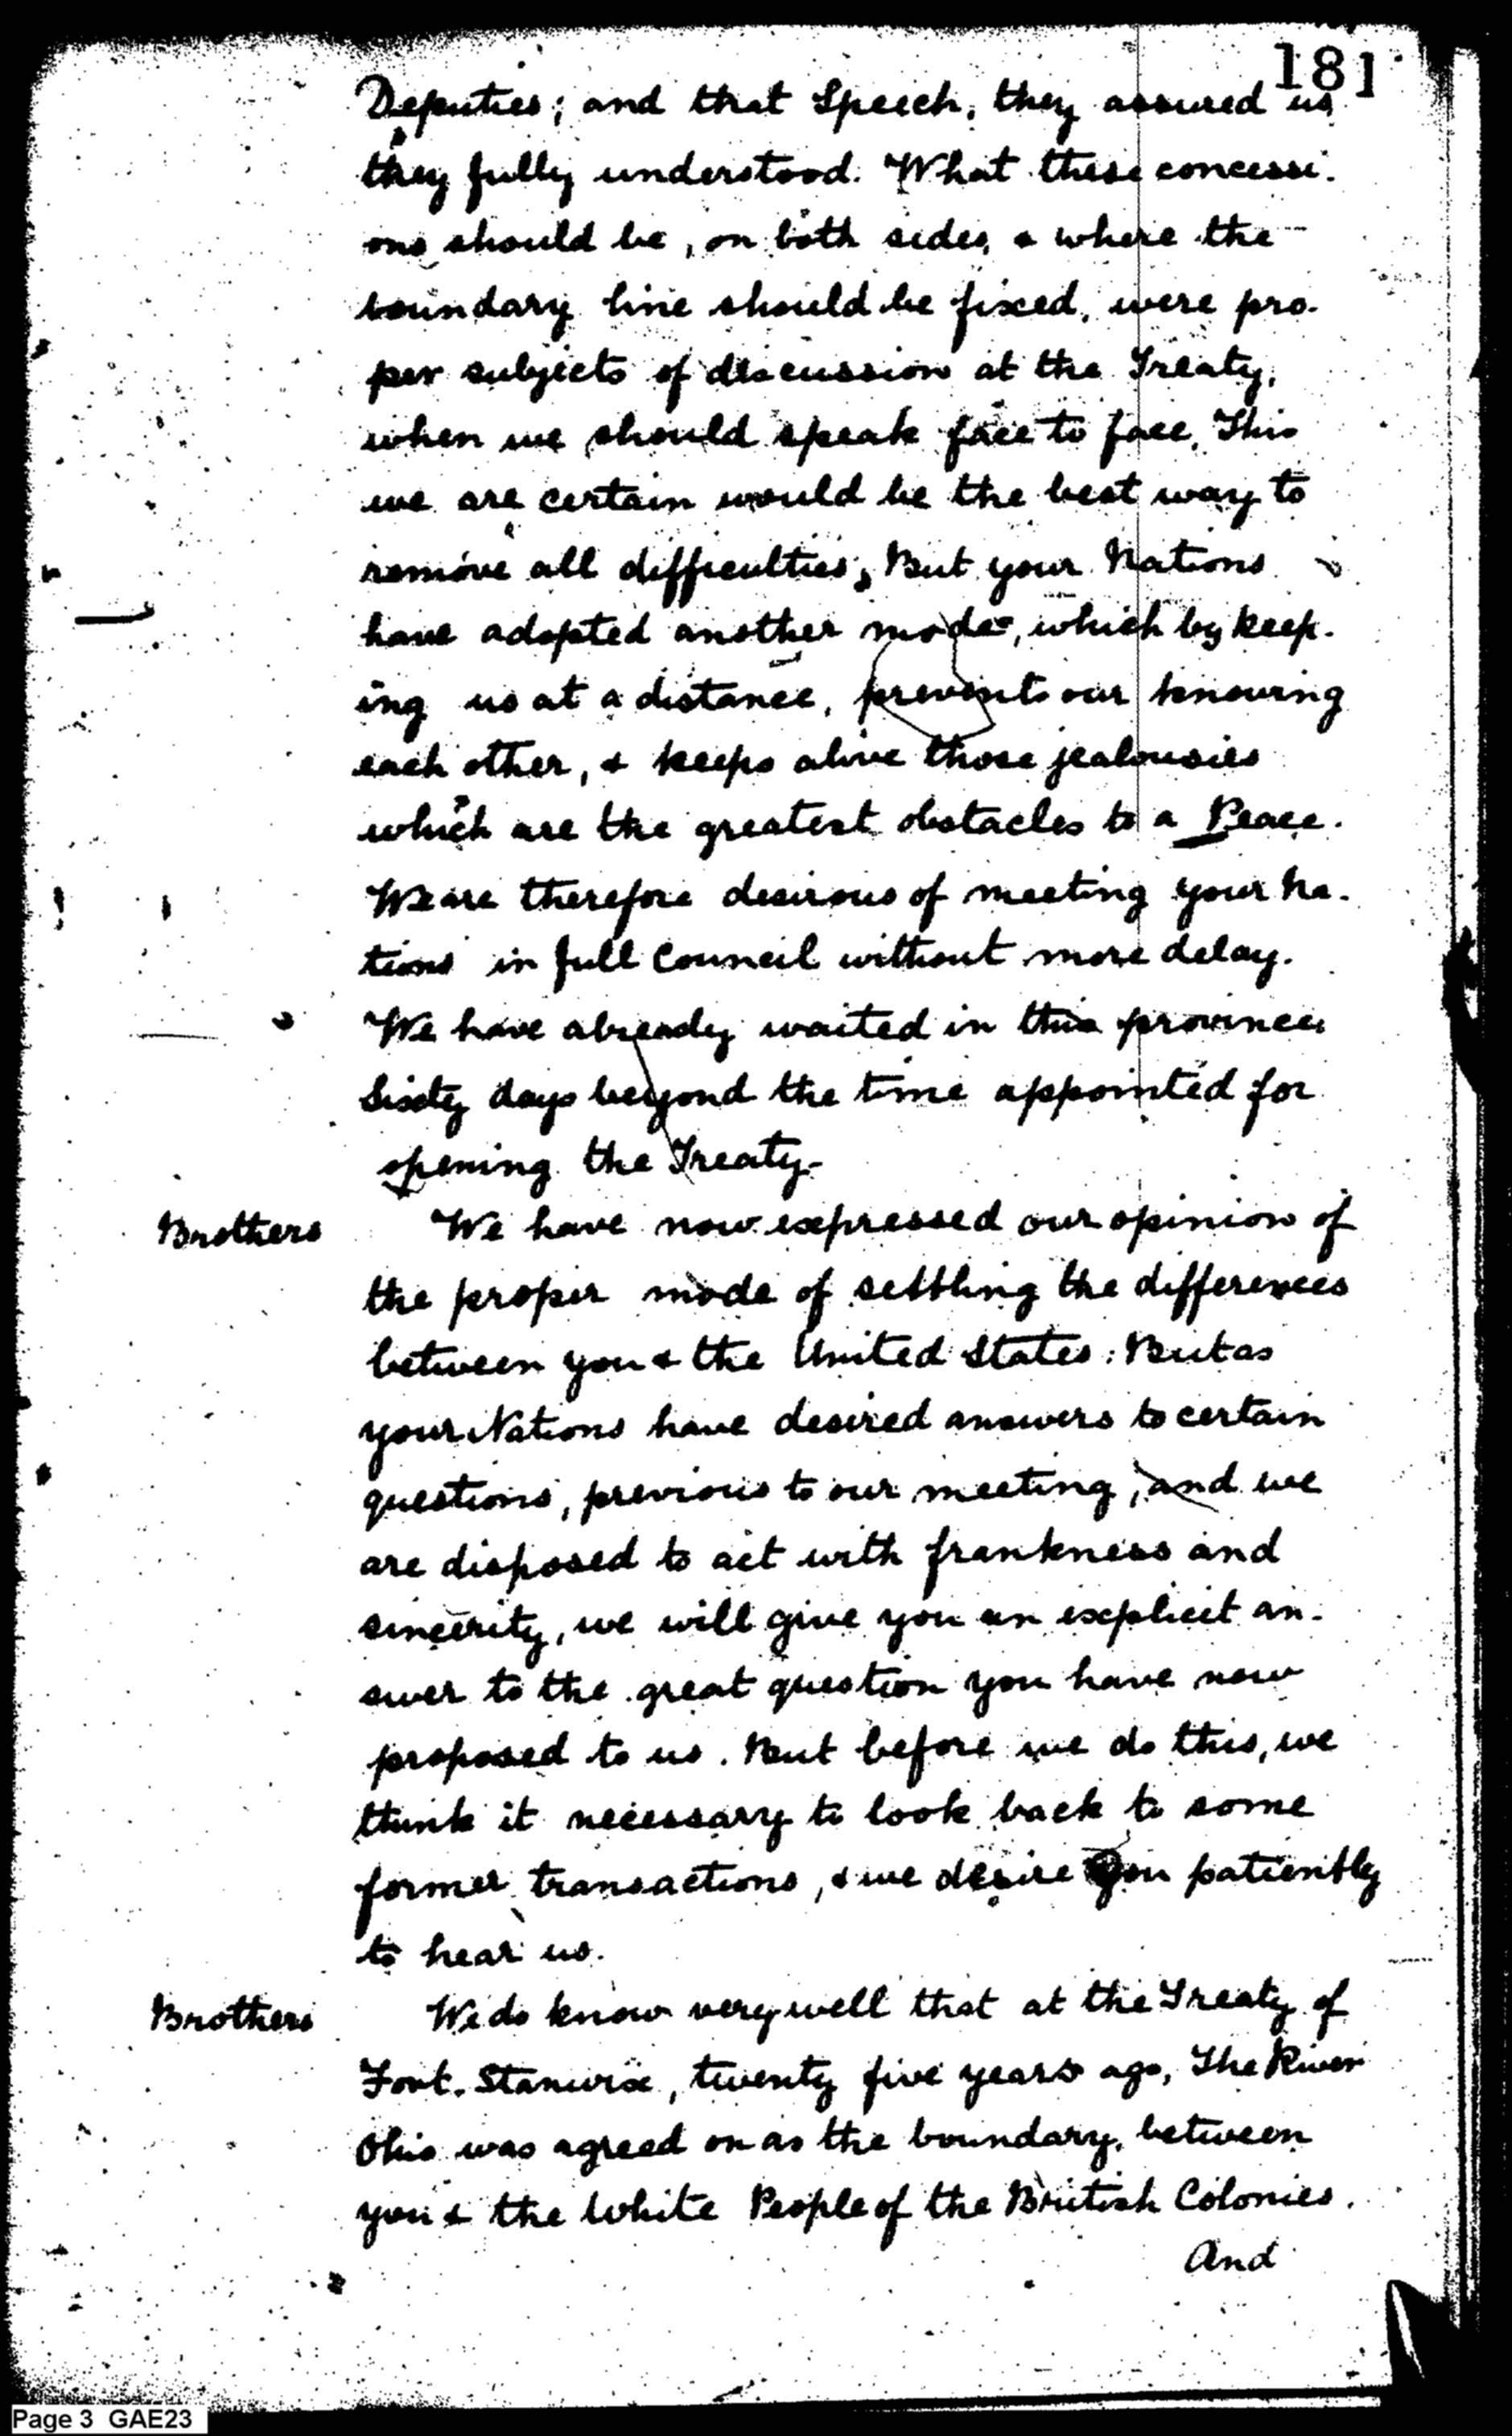 181
Deputies; and that Speech, they assured us
they fully understood. What these concessi-
ons should be, on both sides, & where the
boundary line should be fixed, were pro-
per subjects of discussion at the Treaty,
when we should speak face to face. This
we are certain would be the best way to
remove all difficulties; But your Nations
have adopted another mode, which by keep-
ing us at a distance, prevents our knowing
each other, & keeps alive those jealousies
which are the greatest obstacles to a Peace.
We are therefore desirous of meeting your Na-
tions in full Council without more delay.
We have already waited in this province
Sixty days beyond the time appointed for
opening the Treaty-
Brothers We have now expressed our opinion of
the proper mode of settling the differences
between you & the United States: But as
your Nations have desired answers to certain
questions, previous to our meeting, and we
are disposed to act with frankness and
sincerity, we will give you an explicit an-
swer to the great question you have now
proposed to us. But before we do this, we
think it necessary to look back to some
former transactions, & we desire you patiently
to hear us.
Brothers We do know very well that at the Treaty of
Fort Stanwix, twenty five years ago, The River
Ohio was agreed on as the boundary, between
you & the White People of the British Colonies.
And
Page 3 GAE23